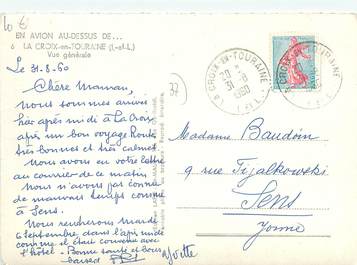 10 €
EN AVION AU-DESSUS DE...
6 LA CROIX-en-TOURAINE (I.-et-L.)
Vue générale
Le 31-8-60
Chère Maman,
Nous sommes arrivés
hier après midi à La Croix
après un bon voyage Route
très bonnes et très calmes
Nous avons eu votre lettre
au courrier de ce matin.
Nous n'avons pas connu
de mauvais temps comme
à Sens.
Nous rentrerons mardi
6 Septembre dans l'après midi
comme il était convenu avec
l'hôtel. Bonne santé et bons
baisers
Yvette
37
LA CROIX-EN-TOURAINE
20 H
31-8
1960
I. ET L.
LA CROIX-EN-TOURAINE
I. ET L.
Madame Baudoin
9 rue Fijalkowski
Sens
Yonne